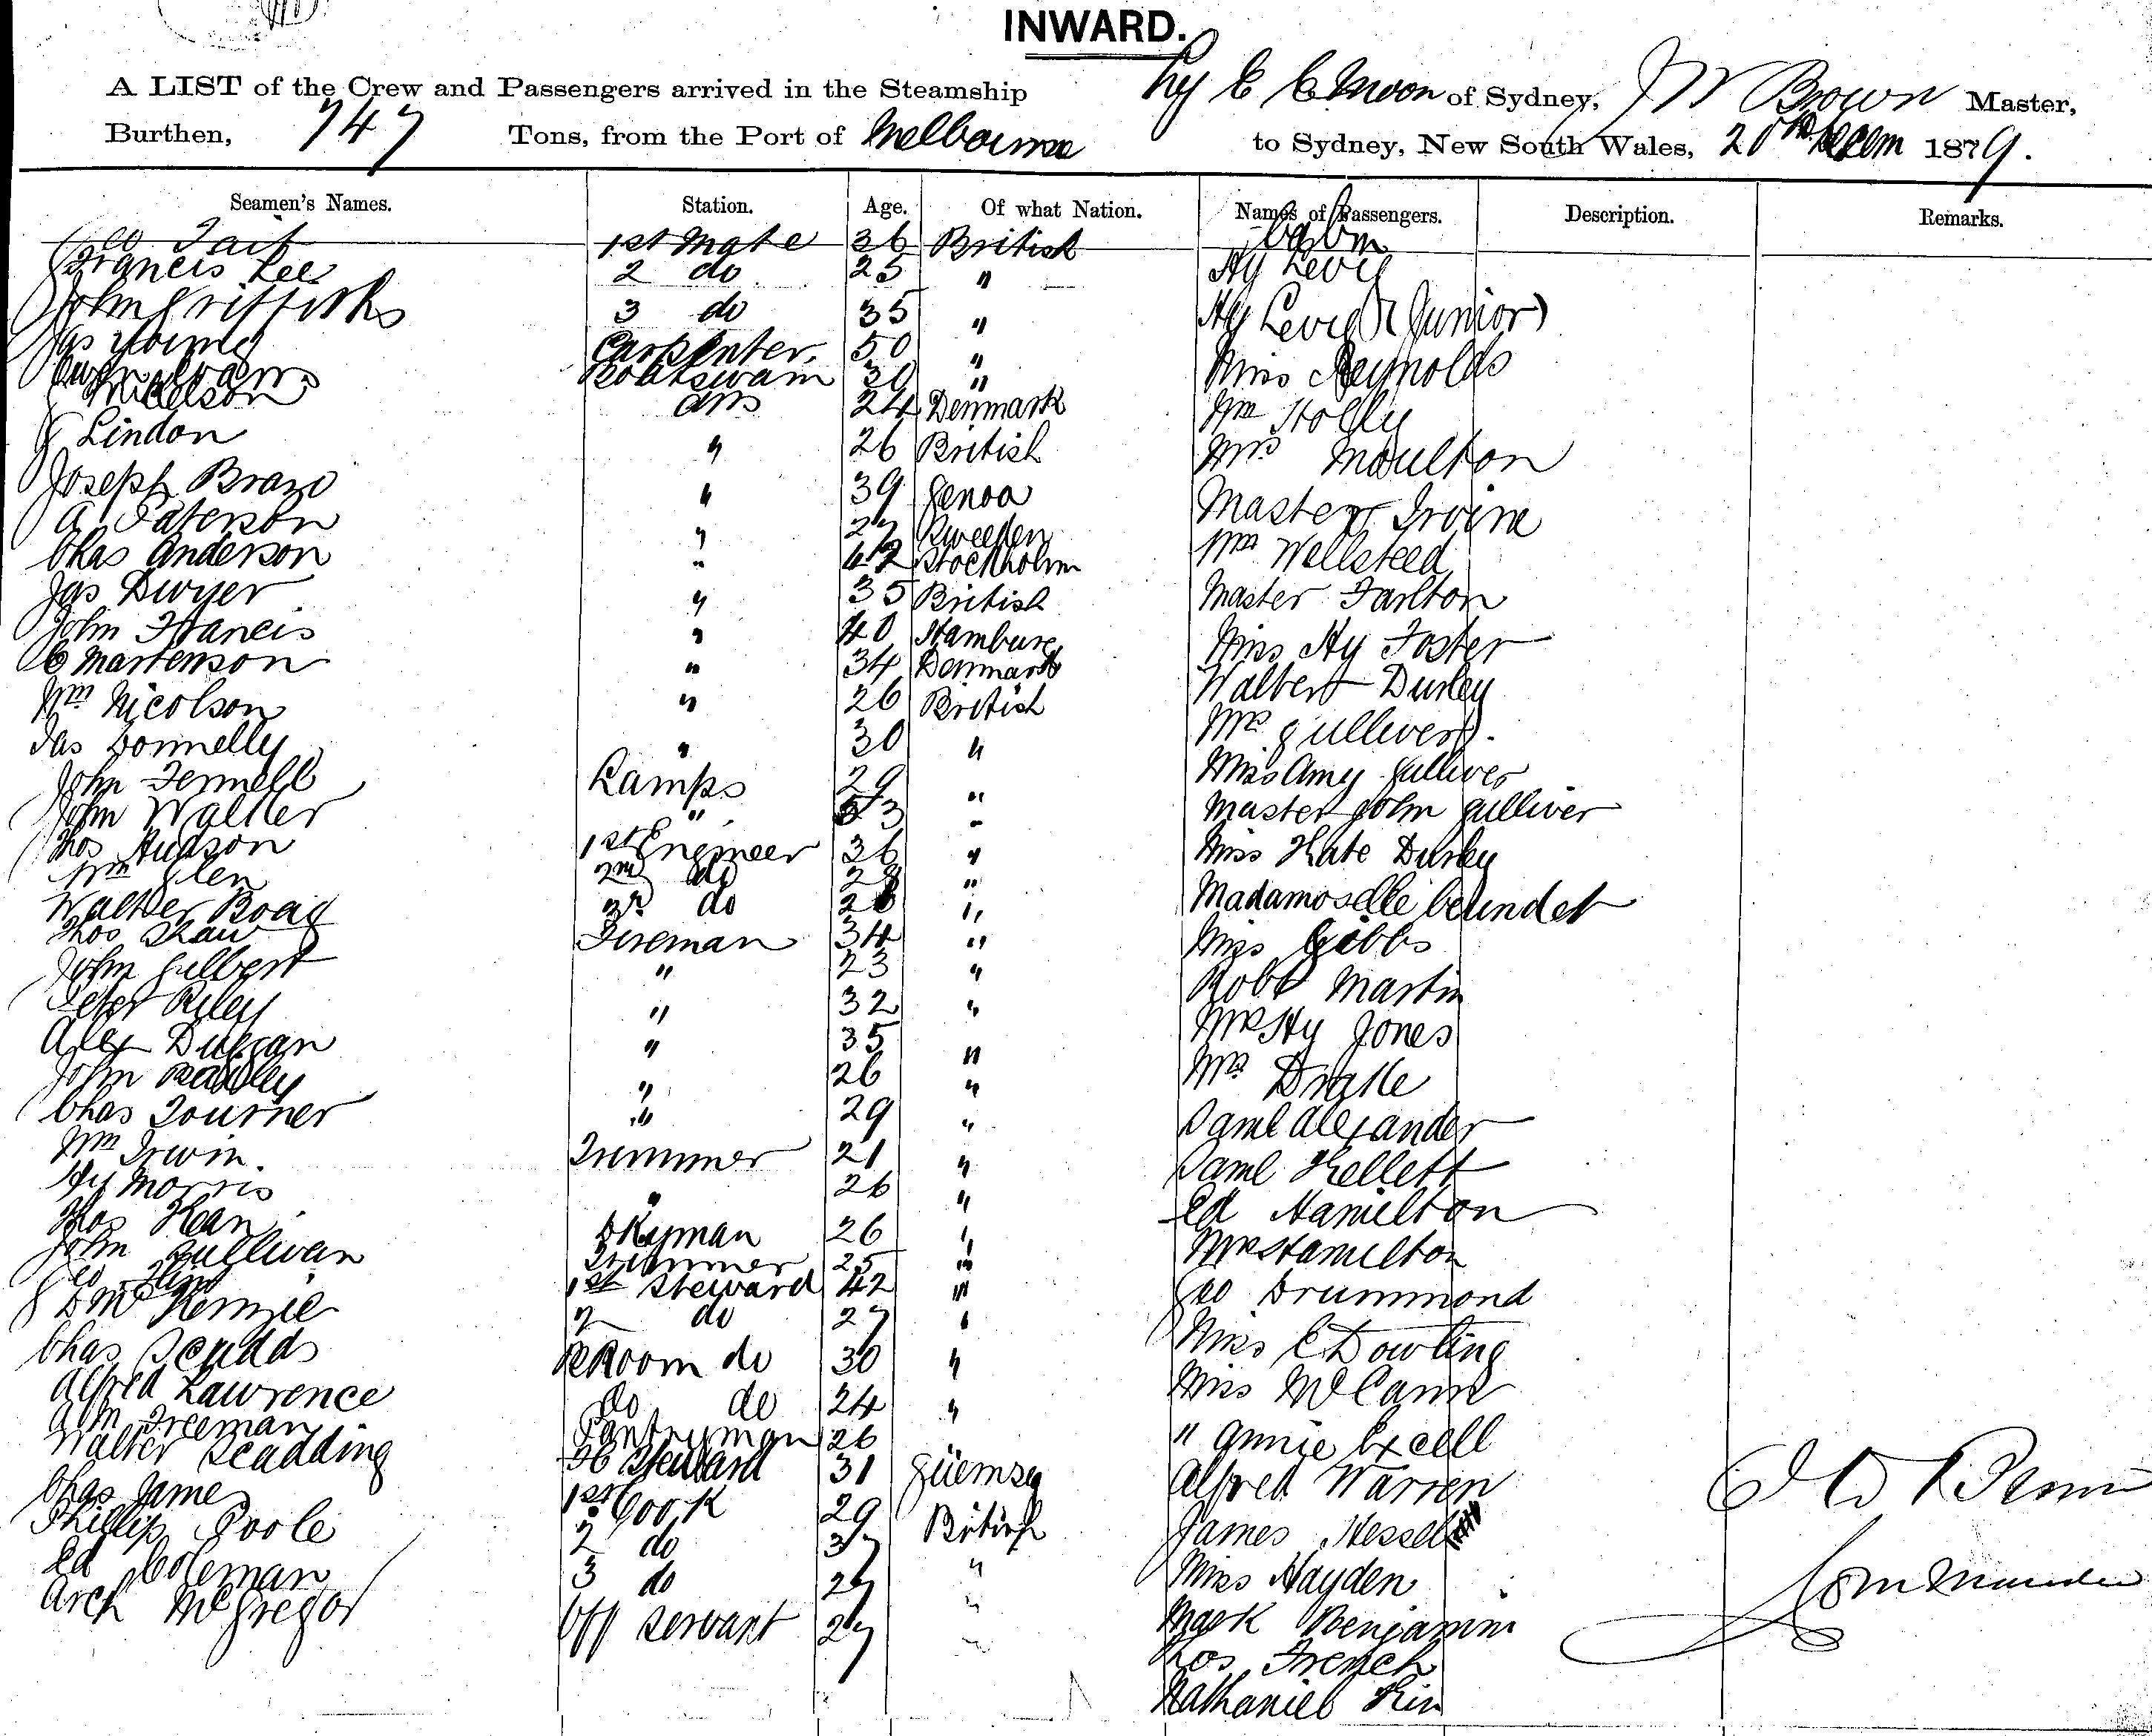 INWARD.
A LIST of the Crew and Passengers arrived in the Steamship of Sydney, Brown Master,
Burthen, 747 Tons, from the Port of Melbourne to Sydney, New South Wales, 20th 1879.
Seamen's Names. Station. Age. Of what Nation. Names of Passengers. Description. Remarks.
Tait 1st Mate 36 British Cabin
Francis Lee 2 do 25 " Hy Levy
John Griffiths 3 do 35 " Hy Levy (Junior)
Jas Young Carpenter 50 " Miss Reynolds
Boatswain 30 "
ABs 24 Denmark Wm Holly
Lindon " 26 British Mrs Moulton
Joseph Bravo " 39 Genoa Master Irvine
A Paterson " 27 Sweeden Wm Wellsteed
Chas Anderson " 42 Stockholm
Jas Dwyer " 35 British Master Tarlton
John Francis " 40 Hamburg Miss Hy Foster
C Martenson " 34 Denmark Walbert Durley
Wm Nicolson " 26 British Mrs Gulliver
Jas Donnelly " 30 " Miss Amy Gulliver
John Fennell Lamps 29 " Master John Gulliver
John Walker " "
Thos Hudson 1st Engineer 36 " Miss Kate Durley
Wm Glen 2nd do 28 " Madamoselle
Walter Boag 3rd do "
Thos Shaw Fireman 34 " Miss Gibbs
John Gilbert " 23 " Robt Martin
Peter Riley " 32 " Mr Hy Jones
Alex Duggan " 35 " Mrs Drake
John " 26 " Saml Alexander
Chas Tourner " 29 " Saml Kellett
Wm Irwin. Trimmer 21 " Ed Hamilton
Hy Morris " 26 " Mrs Hamilton
Thos Kean 26 " Geo Drummond
John Sullivan Trimmer 25 "
Geo 1st Steward 42 " Miss C Dowling
D McKenzie 2 do 27 " Miss McCann
Chas Scudds Room do 30 " " Annie Excell
Alfred Lawrence do do 24 " Alfred Warren
Freeman Pantryman 26 James
Walter Scadding Steward 31 Guernsey Miss Hayden
Chas James 1st Cook 29 British Mark Benjamin
Phillip Poole 2 do 37 " Thos French
Ed Coleman 3 do " Nathaniel
Arch McGregor Off Servant 27 "